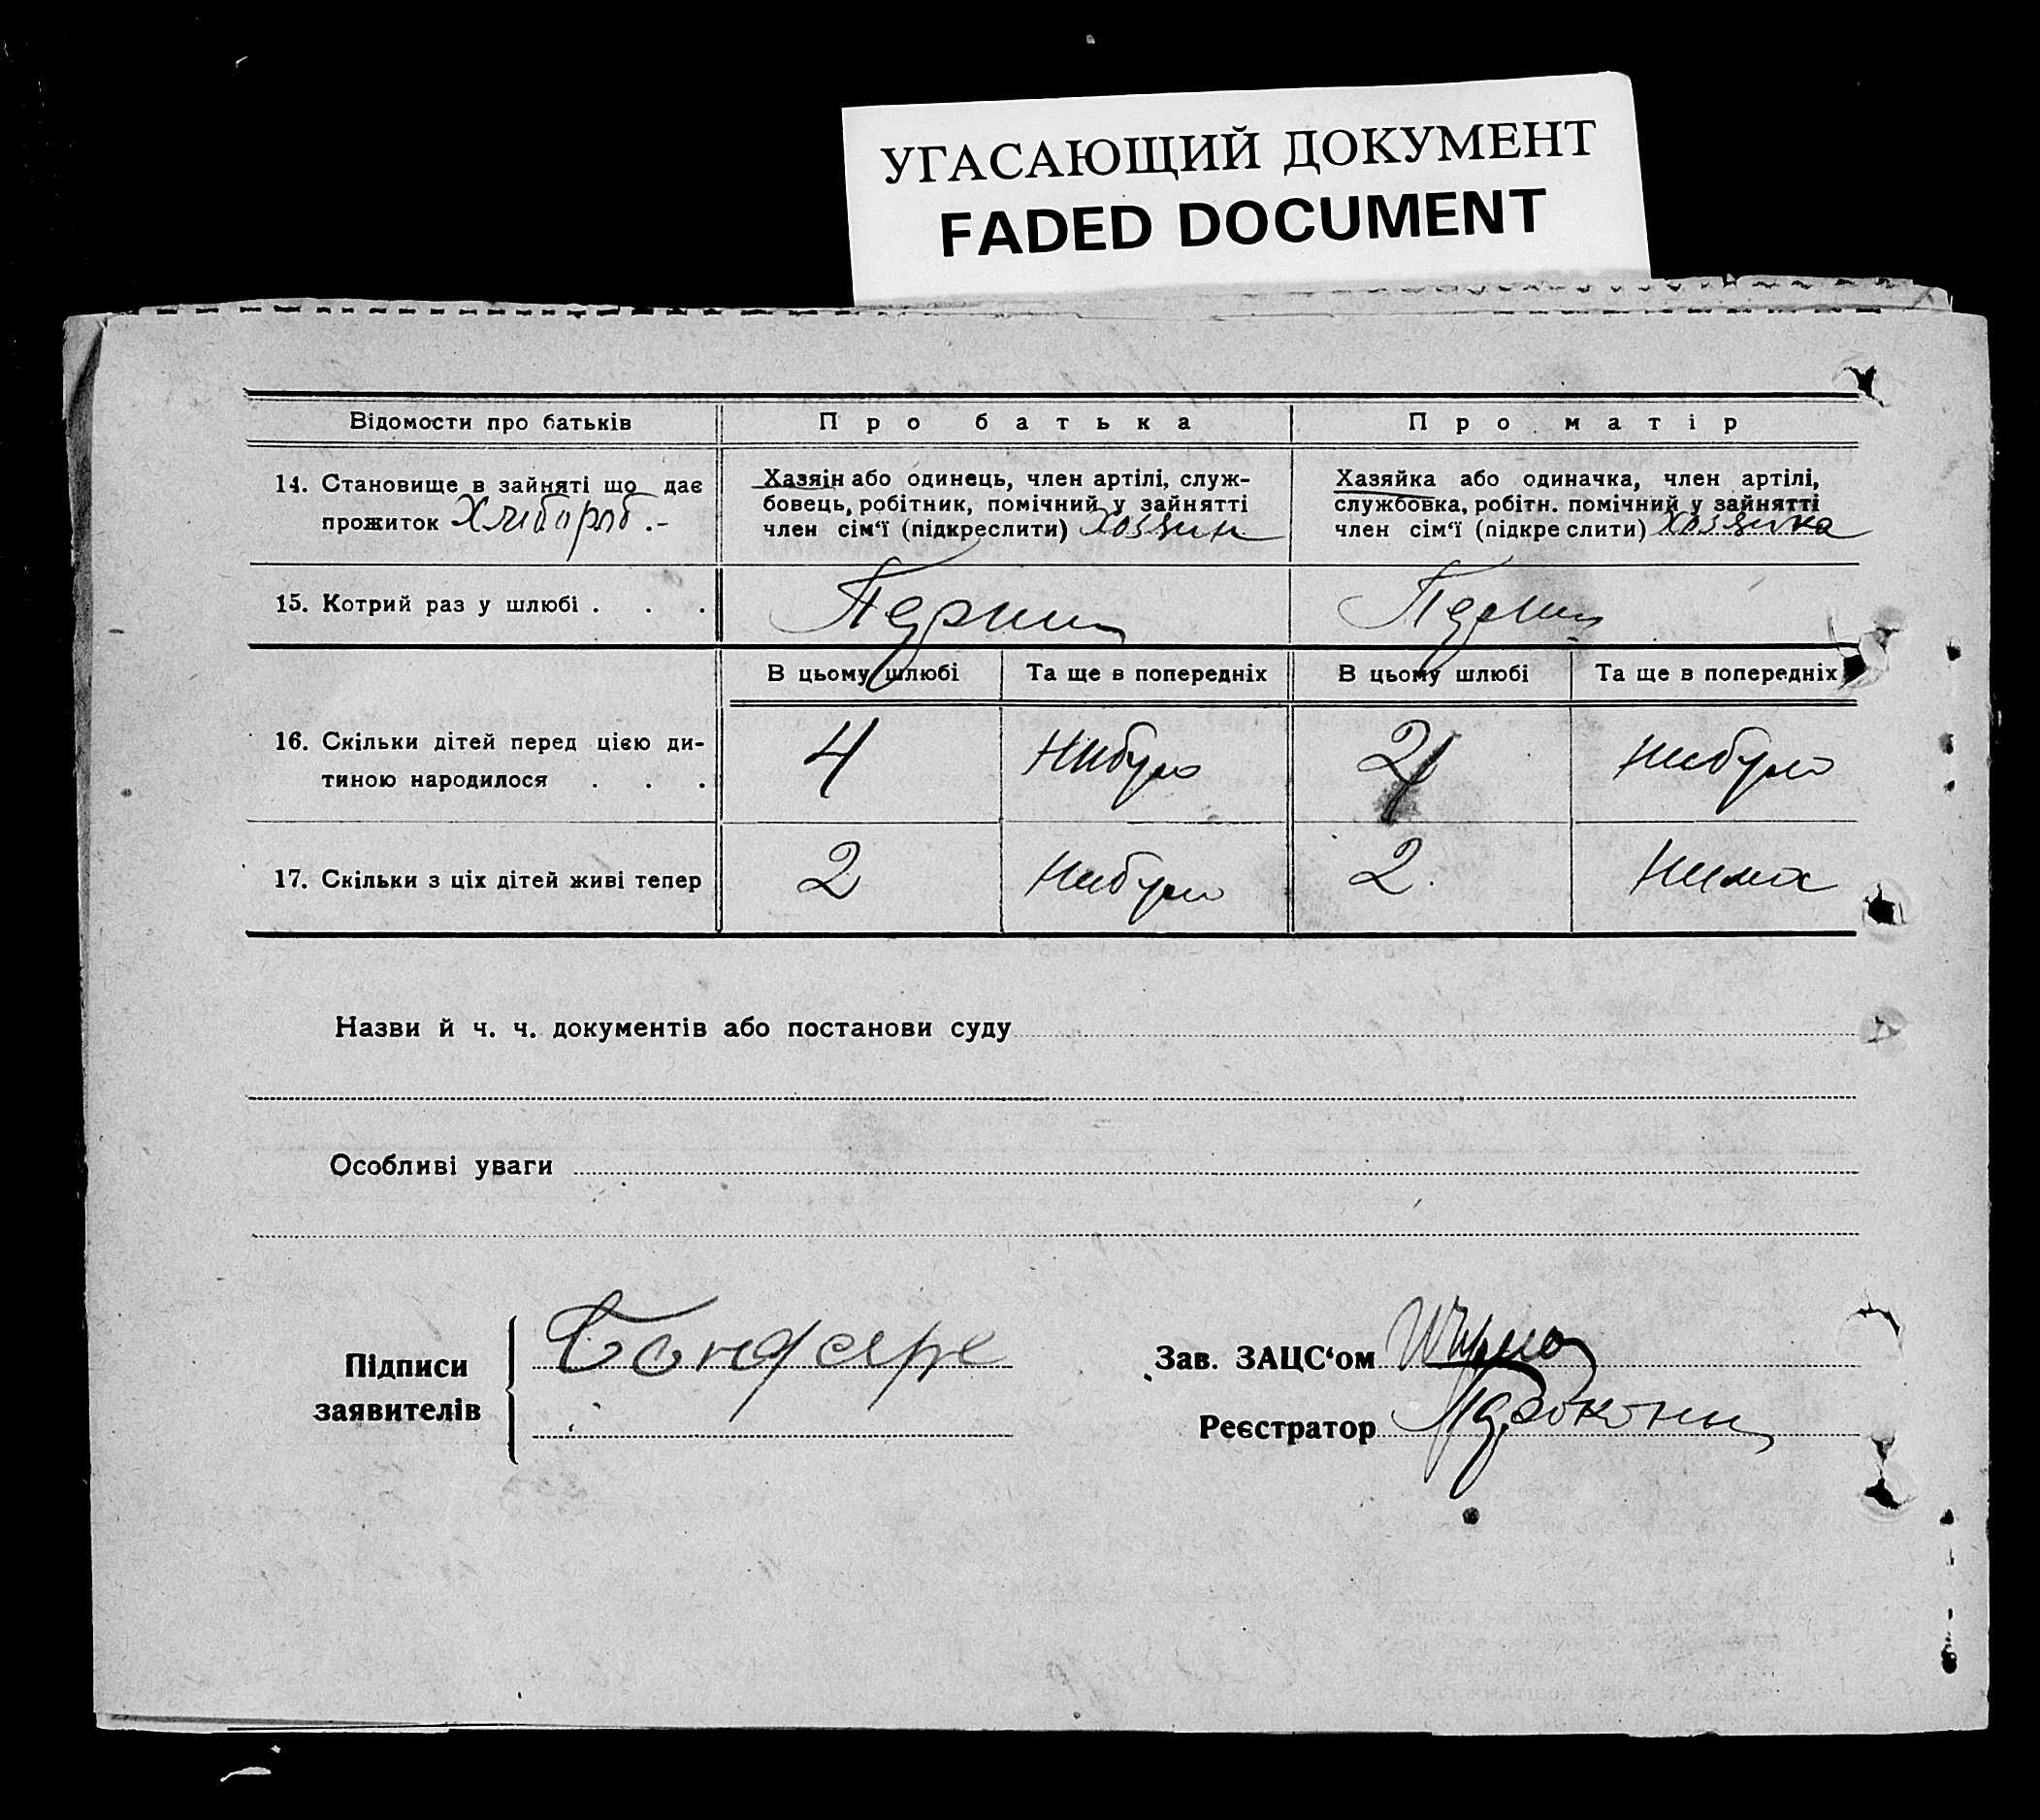 УГАСАЮЩИЙ ДОКУМЕНТ
FADED DOCUMENT
Відомости про батьків
Про батька
Про матір
14. Становище в зайняті що дає
прожиток Хлибороб.-
Хазяін або одинець, член артілі, служ-
бовець, робітник, помічний у зайнятті
член сім‘ї (підкреслити) Хозяин
Хазяйка або одиначка, член артілі,
службовка, робітн. помічний у зайнятті
член сім‘ї (підкреслити) Хозяика
15. Котрий раз у шлюбі . . .
Перший
Перший
В цьому шлюбі
Та ще в попередніх
В цьому шлюбі
Та ще в попередніх
16. Скільки дітей перед цією ди-
тиною народилося . . .
4
Нибуло
4
Нибуло
17. Скільки з ціх дітей живі тепер
2
Нибуло
2.
Нима
Назви й ч. ч. документів або постанови суду
Особливі уваги
Підписи
заявителів
Бондаре
Зав. ЗАЦС‘ом
Реєстратор